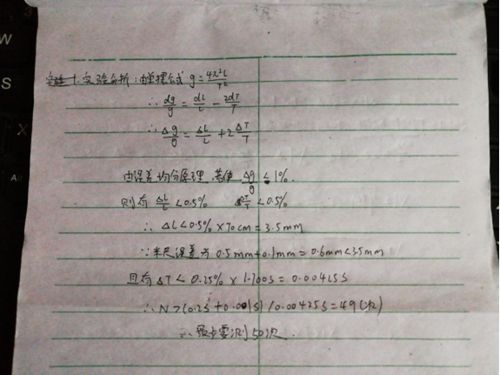 1. 实验分析：由单摆公式 g=4π²L/T²
∴ dg/g = dL/L - 2dT/T
∴ Δg/g = ΔL/L + 2ΔT/T
由误差均分原理，若使 Δg/g < 1%.
则有 ΔL/L < 0.5% ΔT/T < 0.5%
∴ ΔL < 0.5% × 70cm = 3.5mm
∵ 米尺误差为 0.5mm+0.1mm = 0.6mm < 3.5mm
且有 ΔT < 0.25% × 1.700s = 0.00425s
∴ N > (0.2s + 0.001s) / 0.00425s = 49 (次)
∴ 至少需测50次.